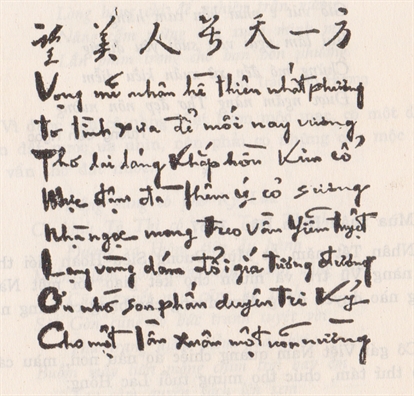 望美人兮天一方
Vọng mĩ nhân hề thiên nhất phương
Tơ tình xưa để mối nay vương
Thơ lai láng khắp hồn Kim cổ
Mực đậm đà thêm ý cỏ sương
ngọc mong treo nguyệt
Lạng vàng dám đổi giá tương đương
Ơn nhờ son phấn duyên tri Kỷ
Cho một lần xuân một